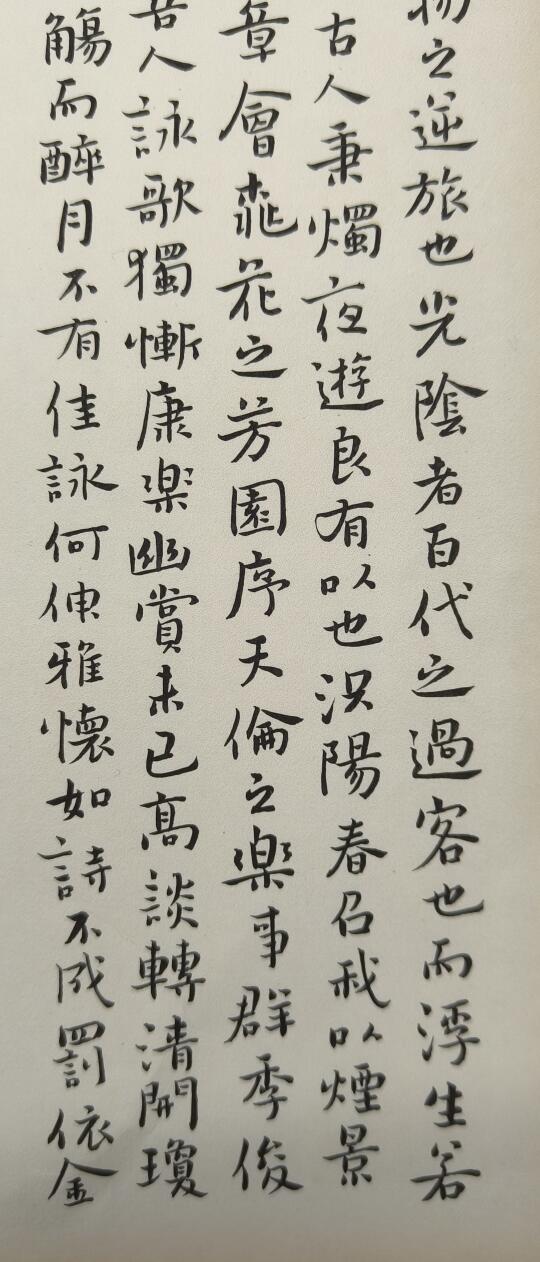 物之逆旅也光陰者百代之過客也而浮生若
古人秉燭夜遊良有以也況陽春召我以煙景
章會桃花之芳園序天倫之樂事群季俊
吾人詠歌獨慚康樂幽賞未已高談轉清開瓊
觴而醉月不有佳詠何伸雅懷如詩不成罰依金